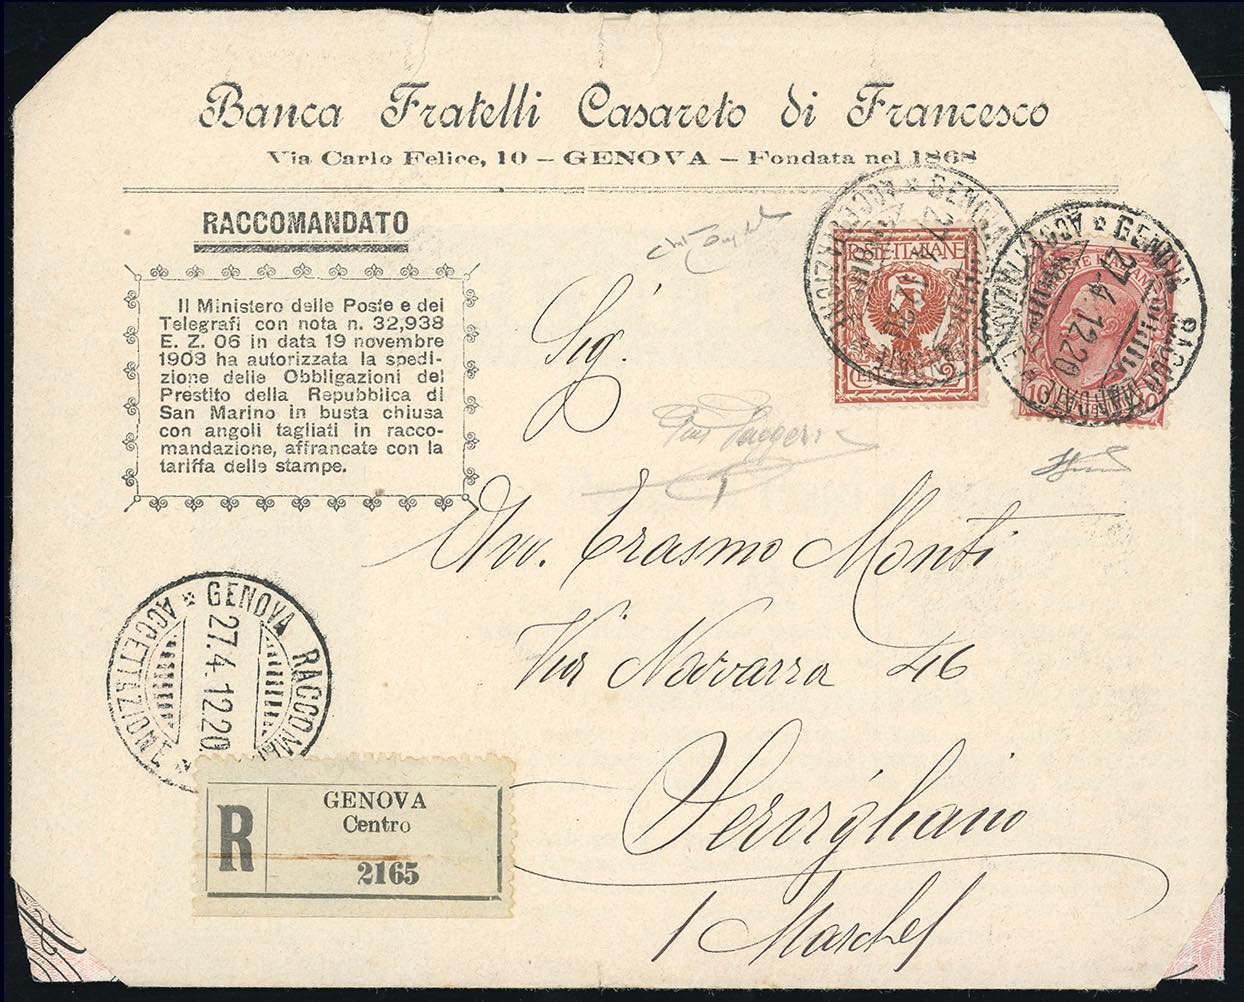 Banca Fratelli Casareto di Francesco
Via Carlo Felice, 10 – GENOVA – Fondata nel 1868
RACCOMANDATO
Il Ministero delle Poste e dei
Telegrafi con nota n. 32,938
E. Z. 06 in data 19 novembre
1903 ha autorizzata la spedi-
zione delle Obbligazioni del
Prestito della Repubblica di
San Marino in busta chiusa
con angoli tagliati in racco-
mandazione, affrancate con la
tariffa delle stampe.
POSTE ITALIANE
GENOVA RACCOMANDATE
ACCETTAZIONE
27.4.12.20
Sig.
Avv. Erasmo Monti
Via Navarra 46
Servigliano
Marche
GENOVA RACCOMA
ACCETTAZIONE
27.4.12.20
R
GENOVA
Centro
2165